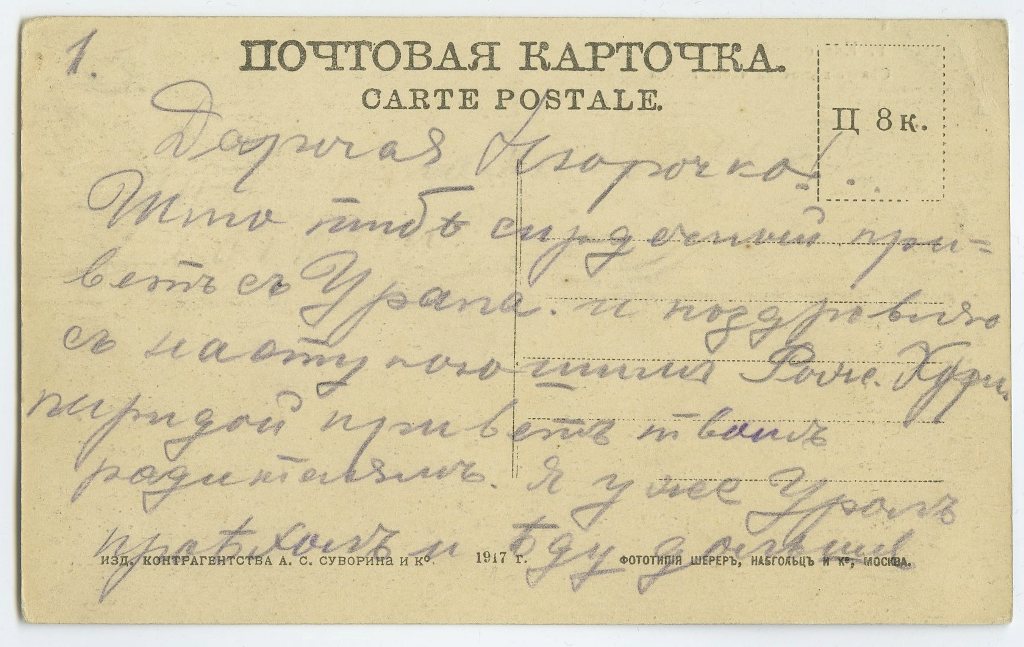 1.
ПОЧТОВАЯ КАРТОЧКА.
CARTE POSTALE.
Ц 8 к.
Дорогая
Шлю тибѣ сирдечный при-
ветъ съ Урала. и поздровляю
съ наступающимъ Рожс. Хри.
пиридой приветъ твоимъ
родителямъ. Я уже Уралъ
проѣхалъ и ѣду дольше
ИЗД. КОНТРАГЕНТСТВА А. С. СУВОРИНА И К⁰. 1917 г. ФОТОТИПІЯ ШЕРЕРЪ, НАБГОЛЬЦЪ И К⁰, МОСКВА.